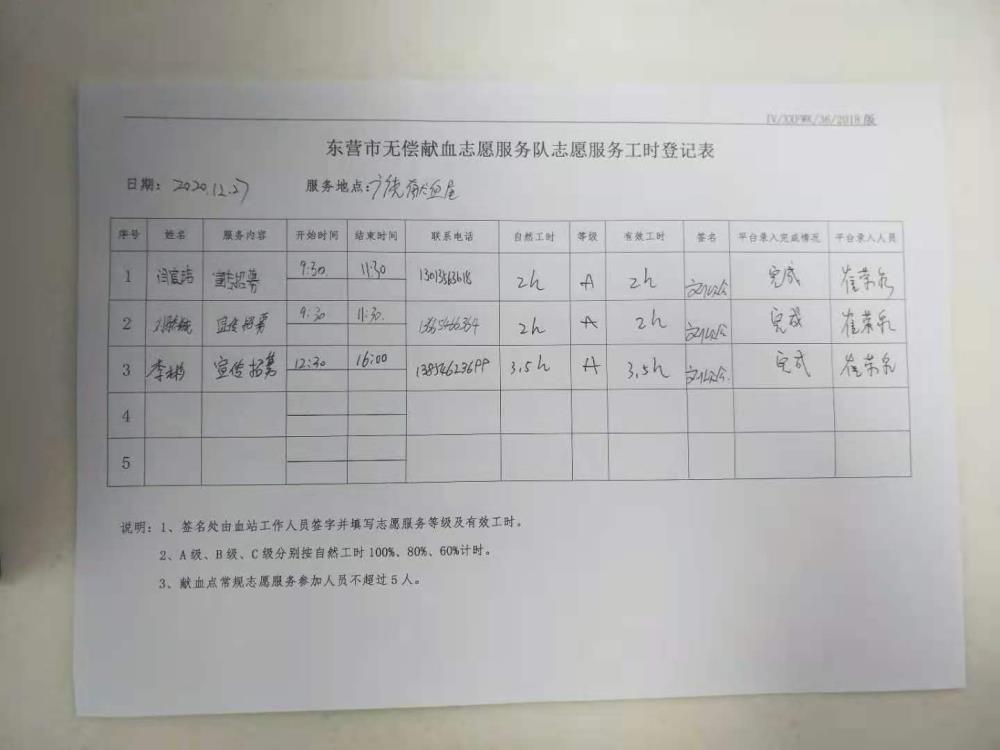 IV/XXFWK/36/2018版
东营市无偿献血志愿服务队志愿服务工时登记表
日期：2020.12.27 服务地点：广饶献血屋
序号 姓名 服务内容 开始时间 结束时间 联系电话 自然工时 等级 有效工时 签名 平台录入完成情况 平台录入人员
1 宣传招募 9:30 11:30 2h A 2h 完成 崔荣泉
2 宣传招募 9:30 11:30 2h A 2h 完成 崔荣泉
3 李彬 宣传招募 12:30 16:00 13854623699 3.5h A 3.5h 完成 崔荣泉
4
5
说明：1、签名处由血站工作人员签字并填写志愿服务等级及有效工时。
2、A级、B级、C级分别按自然工时100%、80%、60%计时。
3、献血点常规志愿服务参加人员不超过5人。